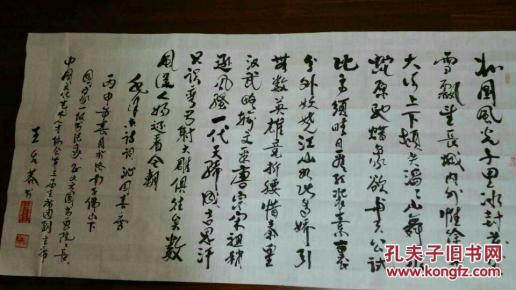 北国风光千里冰封万
雪飘望长城内外惟余
大河上下顿失滔滔山舞
蛇原驰蜡象欲与天公试
比高须晴日看红装素裹
分外妖娆江山如此多娇引
无数英雄竞折腰惜秦皇
汉武略输文采唐宗宋祖稍
逊风骚一代天骄成吉思汗
只识弯弓射大雕俱往矣数
风流人物还看今朝
毛泽东诗词沁园春雪
丙申年春月于济南千佛山下
国家级书法家
中国文化艺术 主席团副主席
王
孔夫子旧书网
KONGFZ.COM